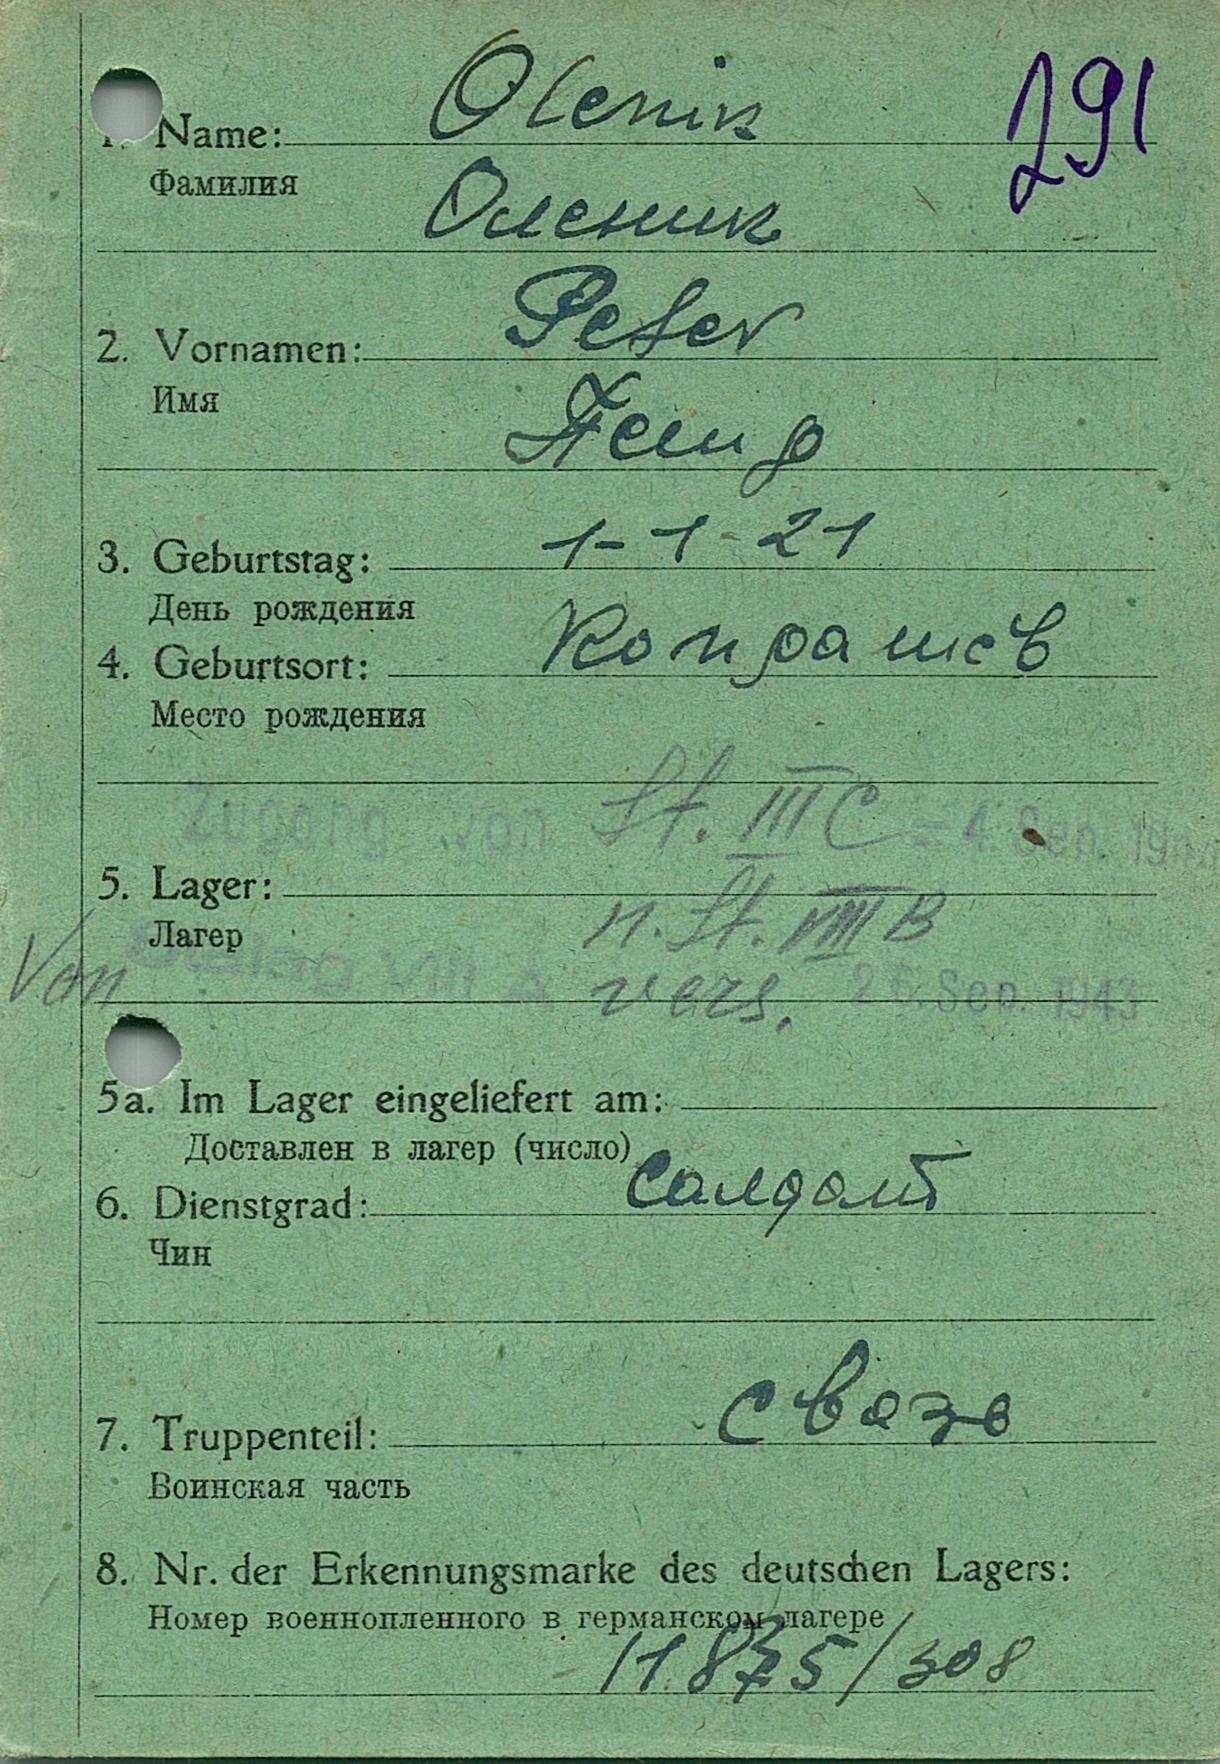 291
Olenik
1. Name:
Фамилия
Оленик
Peter
2. Vornamen:
Имя
3. Geburtstag: 1-1-21
День рождения
4. Geburtsort:
Место рождения
Zugang von St. III C - 4. Sep. 19
5. Lager:
Лагер n. St. VIII B
Von Stalag VIII A vers. 26. Sep. 1943
5a. Im Lager eingeliefert am:
Доставлен в лагер (число)
6. Dienstgrad: Салдат
Чин
7. Truppenteil: Свазь
Воинская часть
8. Nr. der Erkennungsmarke des deutschen Lagers:
Номер военнопленного в германском лагере
11875/308